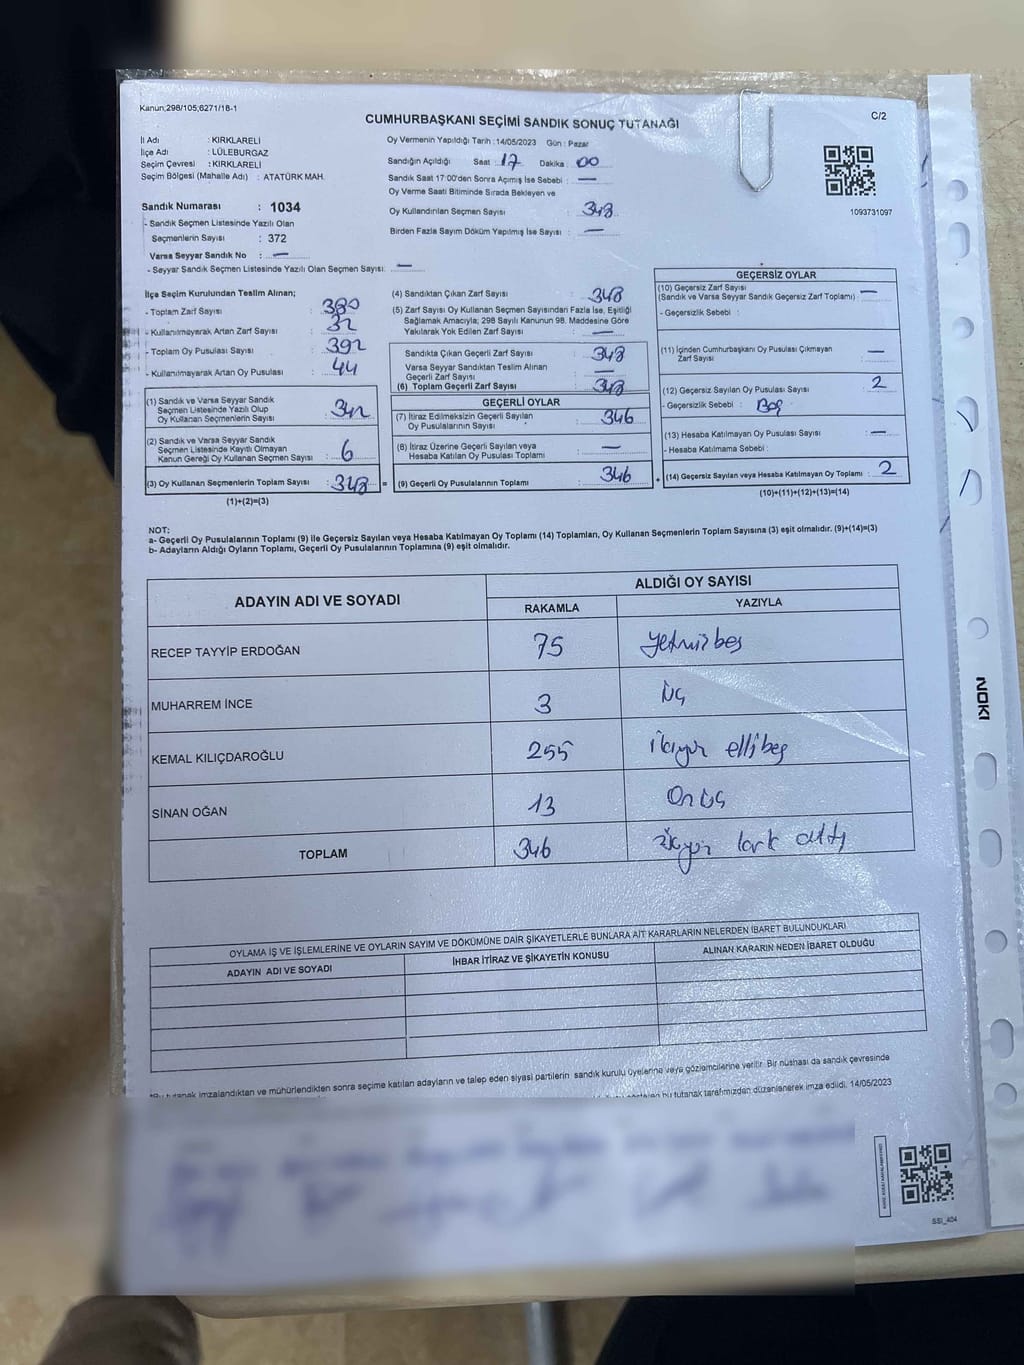 Kanun;298/105;6271/18-1
CUMHURBAŞKANI SEÇİMİ SANDIK SONUÇ TUTANAĞI
C/2
İl Adı : KIRKLARELİ
İlçe Adı : LÜLEBURGAZ
Seçim Çevresi : KIRKLARELİ
Seçim Bölgesi (Mahalle Adı) : ATATÜRK MAH.
Sandık Numarası : 1034
- Sandık Seçmen Listesinde Yazılı Olan
Seçmenlerin Sayısı : 372
Varsa Seyyar Sandık No : —
- Seyyar Sandık Seçmen Listesinde Yazılı Olan Seçmen Sayısı: —
Oy Vermenin Yapıldığı Tarih :14/05/2023 Gün : Pazar
Sandığın Açıldığı Saat : 17 Dakika : 00
Sandık Saat 17:00'den Sonra Açımış İse Sebebi : —
Oy Verme Saati Bitiminde Sırada Bekleyen ve
Oy Kullandırılan Seçmen Sayısı : 348
Birden Fazla Sayım Döküm Yapılmış İse Sayısı : —
1093731097
İlçe Seçim Kurulundan Teslim Alınan;
- Toplam Zarf Sayısı : 380
- Kullanılmayarak Artan Zarf Sayısı : 32
- Toplam Oy Pusulası Sayısı : 392
- Kullanılmayarak Artan Oy Pusulası : 44
(1) Sandık ve Varsa Seyyar Sandık
Seçmen Listesinde Yazılı Olup
Oy Kullanan Seçmenlerin Sayısı : 342
(2) Sandık ve Varsa Seyyar Sandık
Seçmen Listesinde Kayıtlı Olmayan
Kanun Gereği Oy Kullanan Seçmen Sayısı : 6
(3) Oy Kullanan Seçmenlerin Toplam Sayısı : 348 =
(1)+(2)=(3)
(4) Sandıktan Çıkan Zarf Sayısı : 348
(5) Zarf Sayısı Oy Kullanan Seçmen Sayısından Fazla İse, Eşitliği
Sağlamak Amacıyla; 298 Sayılı Kanunun 98. Maddesine Göre
Yakılarak Yok Edilen Zarf Sayısı : —
Sandıkta Çıkan Geçerli Zarf Sayısı : 348
Varsa Seyyar Sandıktan Teslim Alınan
Geçerli Zarf Sayısı : —
(6) Toplam Geçerli Zarf Sayısı : 348
GEÇERLİ OYLAR
(7) İtiraz Edilmeksizin Geçerli Sayılan
Oy Pusulalarının Sayısı : 346
(8) İtiraz Üzerine Geçerli Sayılan veya
Hesaba Katılan Oy Pusulası Toplamı : —
(9) Geçerli Oy Pusulalarının Toplamı : 346 +
GEÇERSİZ OYLAR
(10) Geçersiz Zarf Sayısı
(Sandık ve Varsa Seyyar Sandık Geçersiz Zarf Toplamı) : —
- Geçersizlik Sebebi :
(11) İçinden Cumhurbaşkanı Oy Pusulası Çıkmayan
Zarf Sayısı : —
(12) Geçersiz Sayılan Oy Pusulası Sayısı : 2
- Geçersizlik Sebebi : Boş
(13) Hesaba Katılmayan Oy Pusulası Sayısı : —
- Hesaba Katılmama Sebebi :
(14) Geçersiz Sayılan veya Hesaba Katılmayan Oy Toplamı : 2
(10)+(11)+(12)+(13)=(14)
NOT:
a- Geçerli Oy Pusulalarının Toplamı (9) ile Geçersiz Sayılan veya Hesaba Katılmayan Oy Toplamı (14) Toplamları, Oy Kullanan Seçmenlerin Toplam Sayısına (3) eşit olmalıdır. (9)+(14)=(3)
b- Adayların Aldığı Oyların Toplamı, Geçerli Oy Pusulalarının Toplamına (9) eşit olmalıdır.
ADAYIN ADI VE SOYADI
ALDIĞI OY SAYISI
RAKAMLA YAZIYLA
RECEP TAYYİP ERDOĞAN 75 yetmişbeş
MUHARREM İNCE 3 üç
KEMAL KILIÇDAROĞLU 255 ikiyüz ellibeş
SİNAN OĞAN 13 Onüç
TOPLAM 346 kırk altı
OYLAMA İŞ VE İŞLEMLERİNE VE OYLARIN SAYIM VE DÖKÜMÜNE DAİR ŞİKAYETLERLE BUNLARA AİT KARARLARIN NELERDEN İBARET BULUNDUKLARI
ADAYIN ADI VE SOYADI İHBAR İTİRAZ VE ŞİKAYETİN KONUSU ALINAN KARARIN NEDEN İBARET OLDUĞU
*Bu tutanak imzalandıktan ve mühürlendikten sonra seçime katılan adayların ve talep eden siyasi partilerin sandık kurulu üyelerine veya gözlemcilerine verilir. Bir nüshası da sandık çevresinde
bu tutanak tarafımızdan düzenlenerek imza edildi. 14/05/2023
SSI_404
NOKI